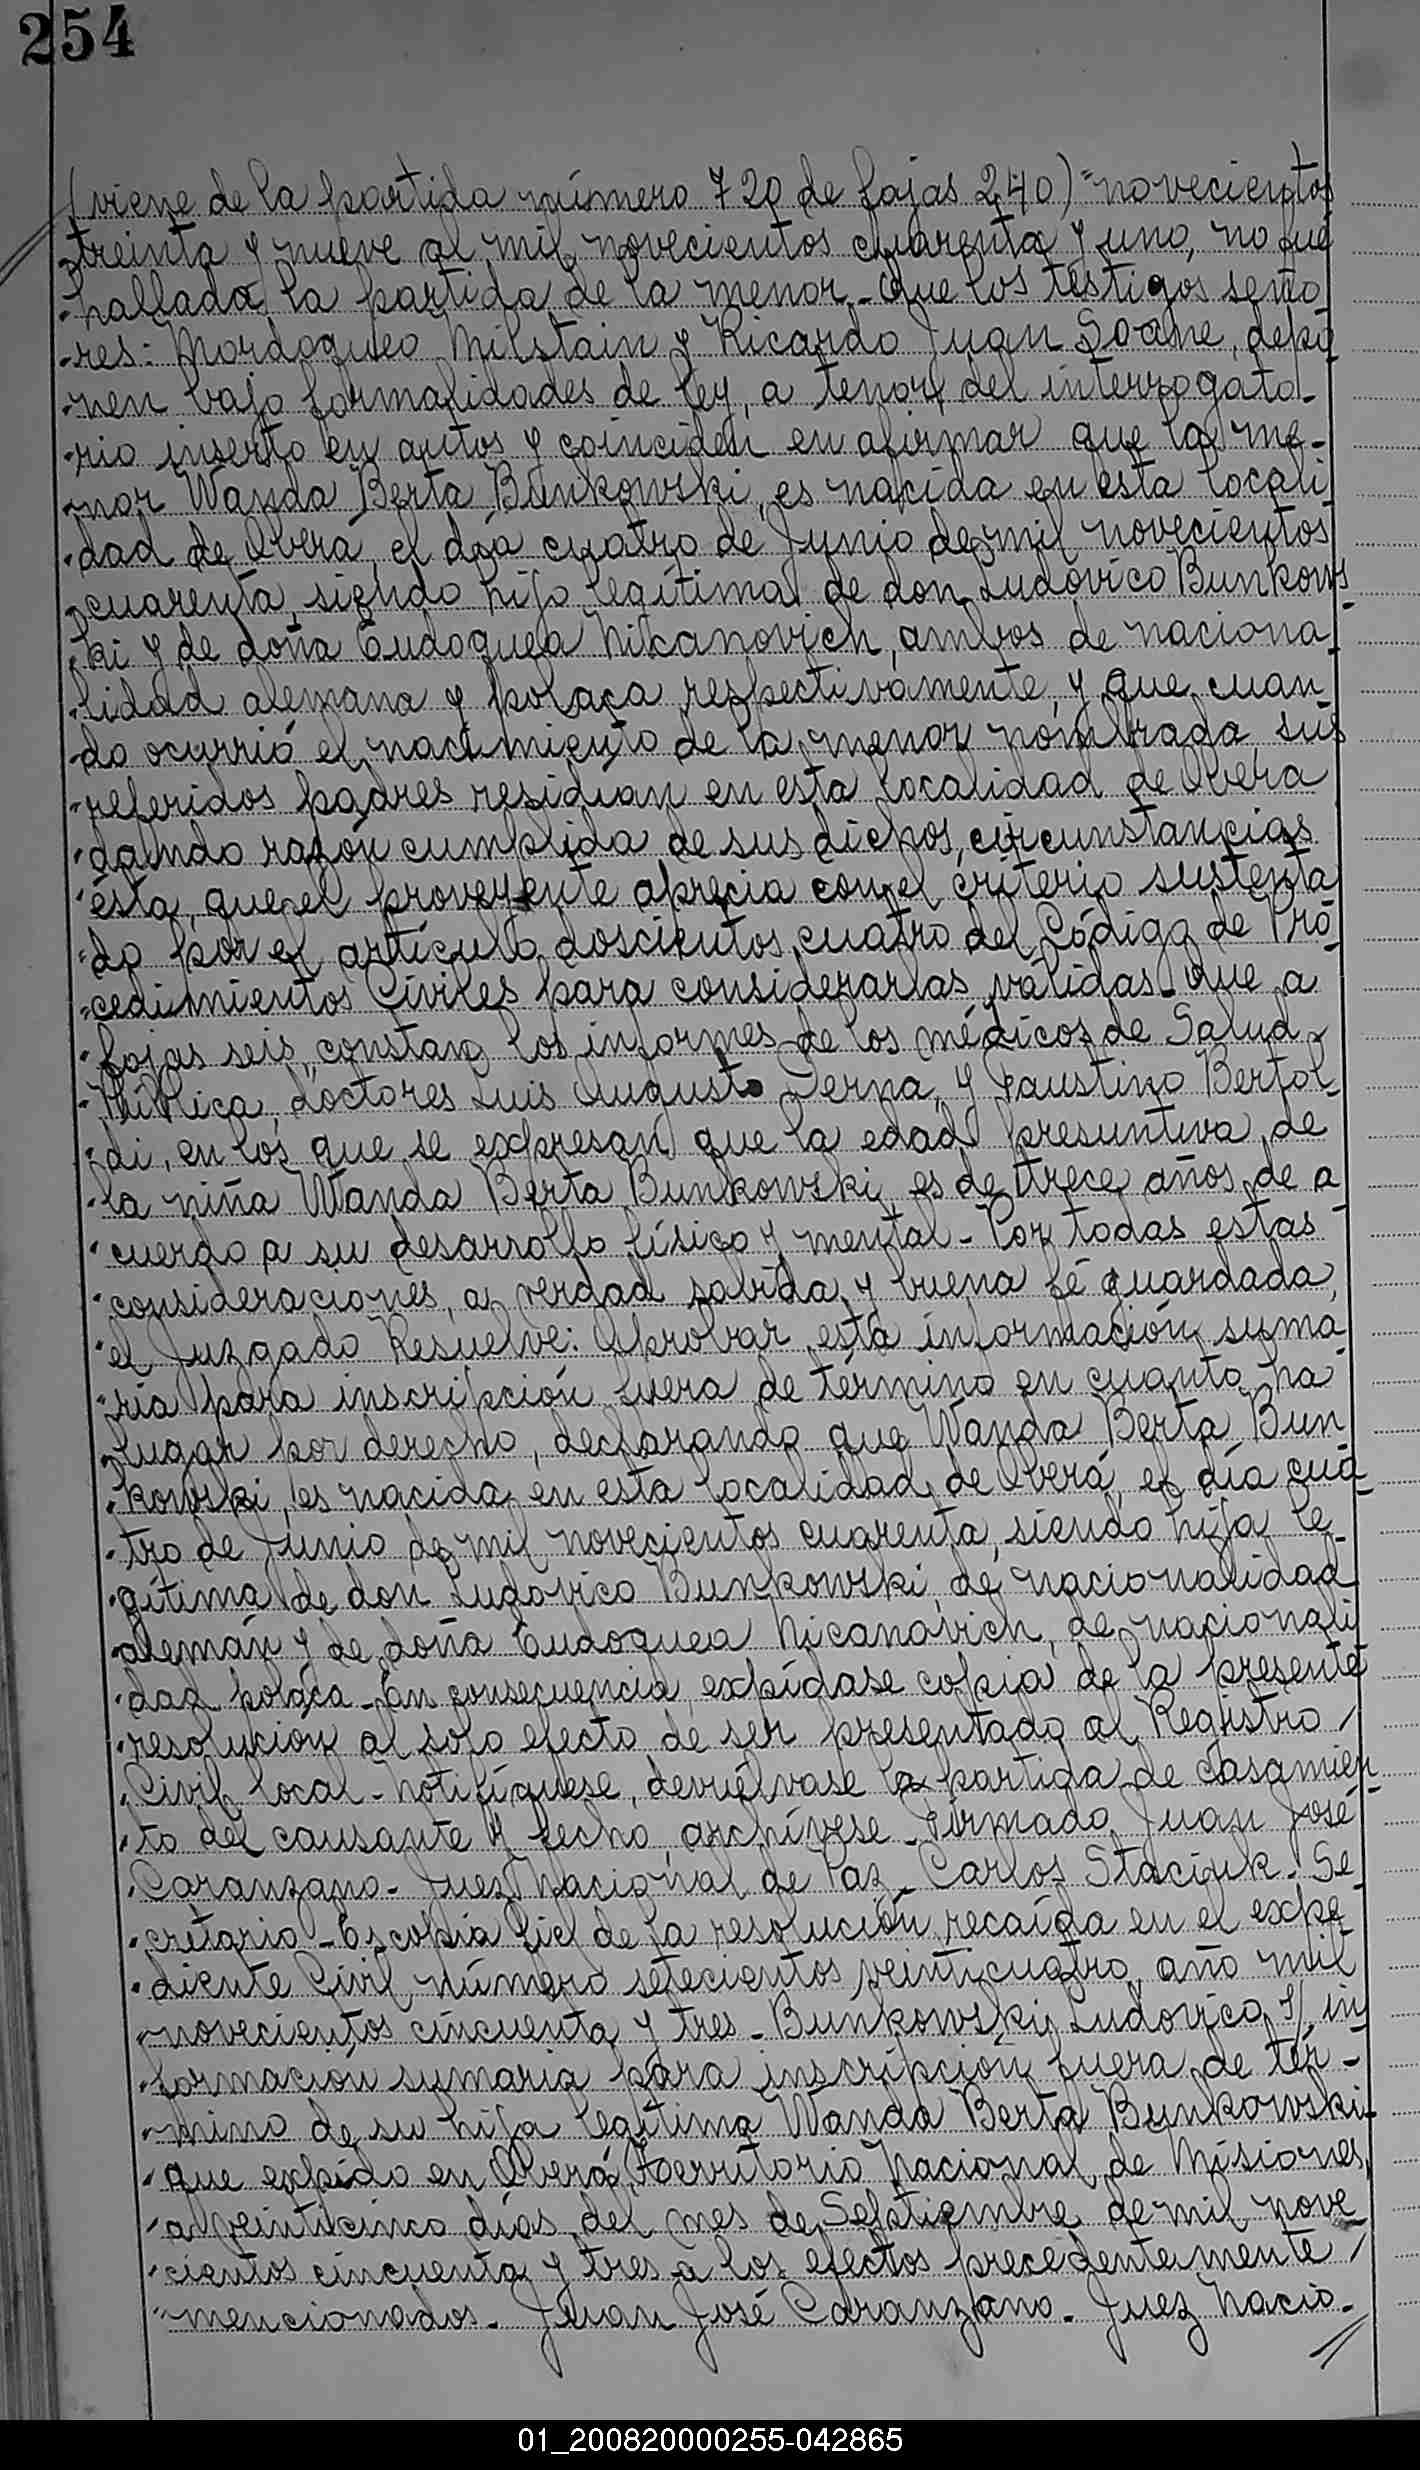 254
(viene de la partida número 720 de fojas 240) "novecientos
"treinta y nueve al mil novecientos cuarenta y uno, no fué
"hallada la partida de la menor.- Que los testigos seño
"res: Mordoqueo Milstain y Ricardo Juan Soane, depo
"nen bajo formalidades de ley, a tenor del interrogato-
"rio inserto en autos y coinciden en afirmar que la me-
"nor Wanda Berta Bunkowski, es nacida en esta locali
"dad de Oberá, el día cuatro de Junio de mil novecientos
"cuarenta, siendo hija legítima de don Ludovico Bunkows
"ki y de doña Eudoquea Nikanovich, ambos de naciona
"lidad alemana y polaca respectivamente, y que cuan
"do ocurrió el nacimiento de la menor nombrada, sus
"referidos padres residían en esta localidad de Oberá
"dando razón cumplida de sus dichos, circunstancias
"ésta, que el proveyente aprecia con el criterio sustenta
"do por el artículo doscientos cuatro del Código de Pro
"cedimientos Civiles para considerarlas válidas.- Que a
"fojas seis, constan los informes de los médicos de Salud
"Pública, doctores Luis Augusto Derna, y Faustino Bertol
"di, en los que se expresan que la edad presuntiva de
"la niña Wanda Berta Bunkowski es de trece años de a
"cuerdo a su desarrollo físico y mental.- Por todas estas
"consideraciones, a verdad sabida y buena fé guardada,
"el Juzgado Resuelve: Aprobar esta información suma
"ria para inscripción fuera de término en cuanto ha
"lugar por derecho, declarando que Wanda Berta Bun
"kowski, es nacida en esta localidad de Oberá, el día cua
"tro de Junio de mil novecientos cuarenta, siendo hija le
"gítima de don Ludovico Bunkowski, de nacionalidad
"alemán y de doña Eudoquea Nicanovich, de nacionali
"dad polaca.- En consecuencia, expídase copia de la presente
"resolución al solo efecto de ser presentado al Registro /
"Civil local.- Notifíquese, devuélvase la partida de casamien
"to del causante y fecho, archívese.- Firmado, Juan José
"Caranzano.- Juez Nacional de Paz.- Carlos Staciuk.- Se
"cretario.- Es copia fiel de la resolución recaída en el expe
"diente Civil número setecientos veinticuatro, año mil
"novecientos cincuenta y tres.- Bunkowski Ludovico s/ in
"formación sumaria para inscripción fuera de tér-
"mino de su hija legítima Wanda Berta Bunkowski
"que expido en Oberá, Territorio Nacional de Misiones,
"a veinticinco días del mes de Septiembre de mil nove
"cientos cincuenta y tres a los efectos precedentemente /
"mencionados.- Juan José Caranzano.- Juez Nacio.-
//
01_200820000255-042865